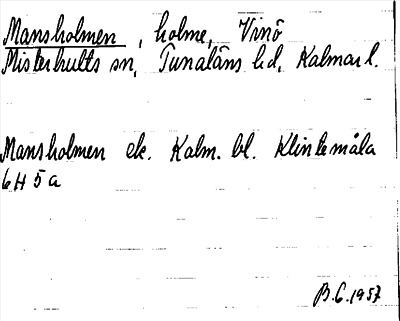 Mansholmen, holme, Vinö
Misterhults sn, Tunaläns hd, Kalmar l.
Mansholmen ek. Kalm. bl. Klintemåla
6H5a
B.G.1957